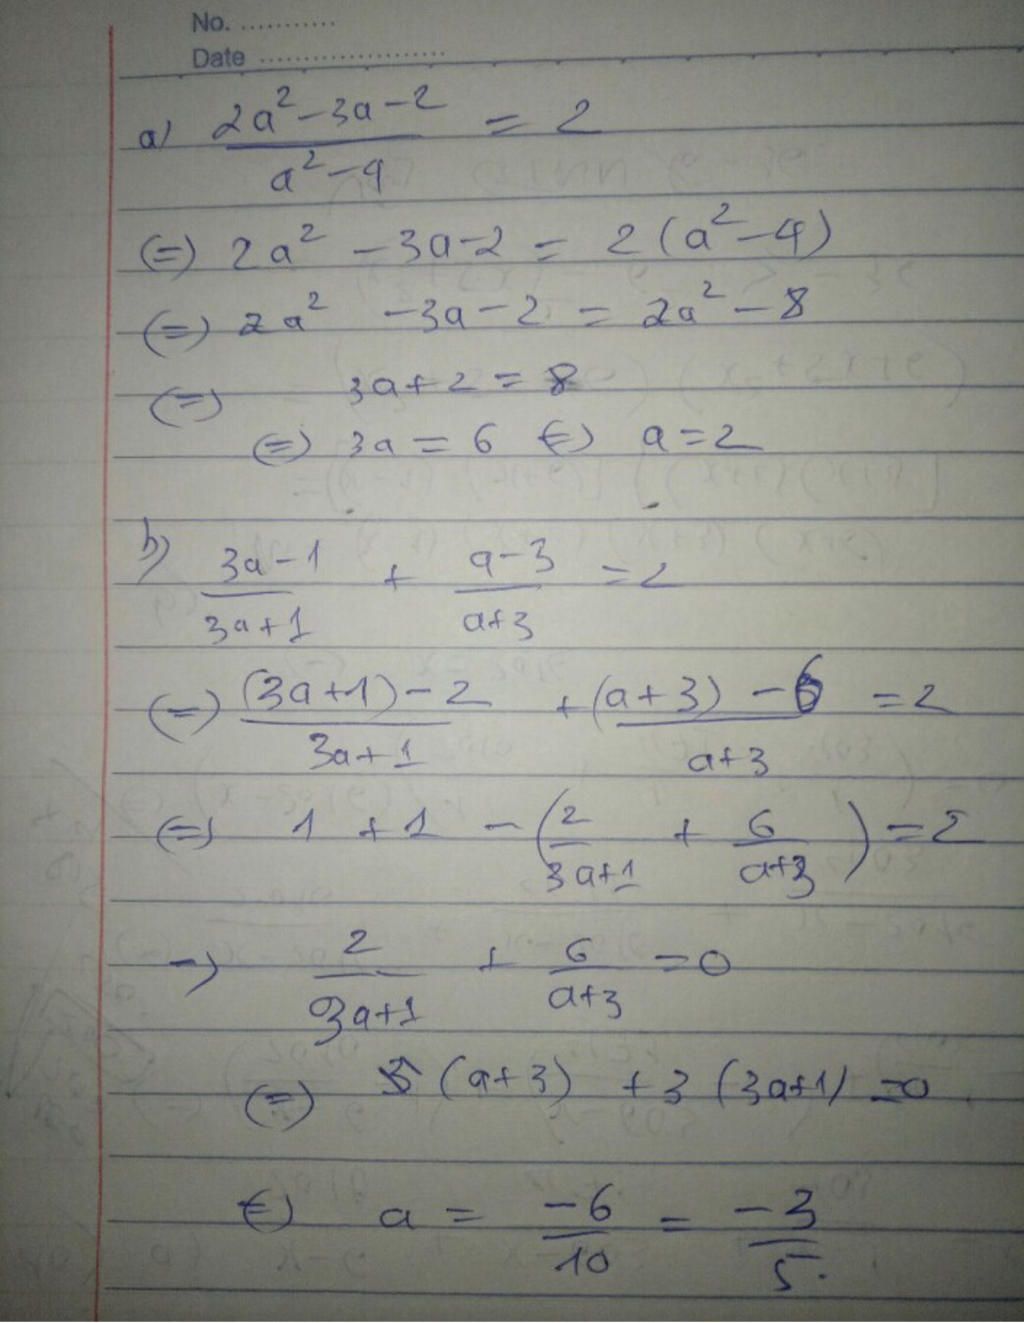 No. ...........
Date ......................
a) (2a² - 3a - 2)/(a² - 4) = 2
(=) 2a² - 3a - 2 = 2(a² - 4)
(=) 2a² - 3a - 2 = 2a² - 8
(=) 3a + 2 = 8
(=) 3a = 6 (=) a = 2
b) (3a - 1)/(3a + 1) + (a - 3)/(a + 3) = 2
(=) ((3a + 1) - 2)/(3a + 1) + ((a + 3) - 6)/(a + 3) = 2
(=) 1 + 1 - (2/(3a + 1) + 6/(a + 3)) = 2
→ 2/(3a + 1) + 6/(a + 3) = 0
(=) (a + 3) + 3(3a + 1) = 0
(=) a = -6/10 = -3/5.